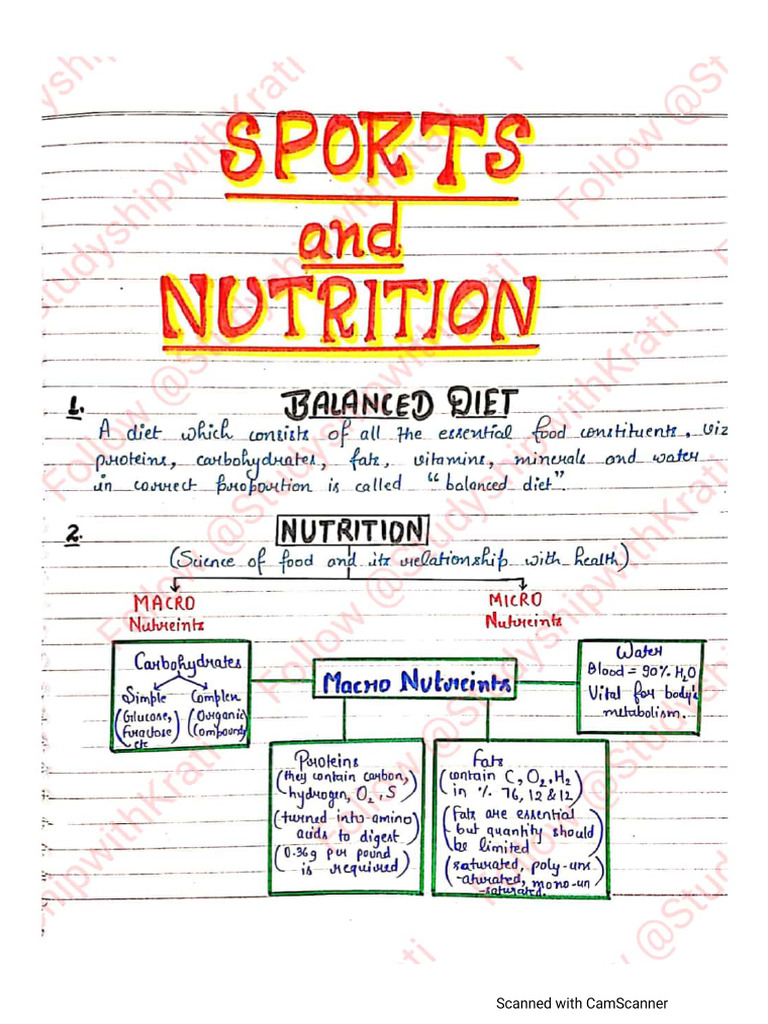 SPORTS
and
NUTRITION
1. BALANCED DIET
A diet which consists of all the essential food constituents, viz
proteins, carbohydrates, fats, vitamins, minerals and water
in correct proportion is called "balanced diet".
2. NUTRITION
(Science of food and its relationship with health)
MACRO
Nutreints
MICRO
Nutreints
Carbohydrates
Simple
(Glucose,
Fractose
etc
Complex
(Organic
Compounds)
Macro Nutreints
Water
Blood = 90% H2O
Vital for body's
metabolism.
Proteins
(they contain carbon,
hydrogen, O2, S)
(turned into amino
acids to digest)
(0.36g per pound
is required)
Fats
(contain C, O2, H2)
in % 76, 12 & 12)
(Fats are essential
but quantity should
be limited)
(saturated, poly-uns
-aturated, mono-un
-saturated.)
Follow @StudyshipwithKrati
Scanned with CamScanner